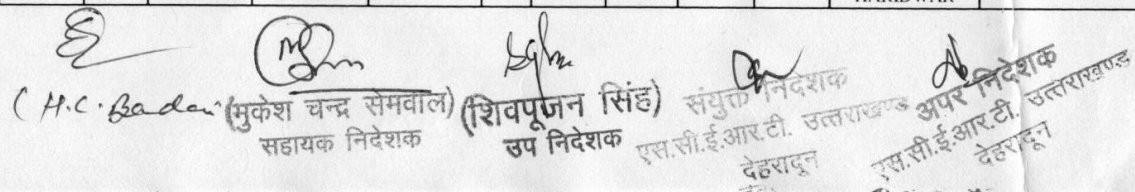 HARIDWAR
(H.C. Badani
(मुकेश चन्द्र सेमवाल)
सहायक निदेशक
(शिवपूजन सिंह)
उप निदेशक
संयुक्त निदेशक
एस.सी.ई.आर.टी. उत्तराखण्ड
देहरादून
अपर निदेशक
एस.सी.ई.आर.टी. उत्तराखण्ड
देहरादून